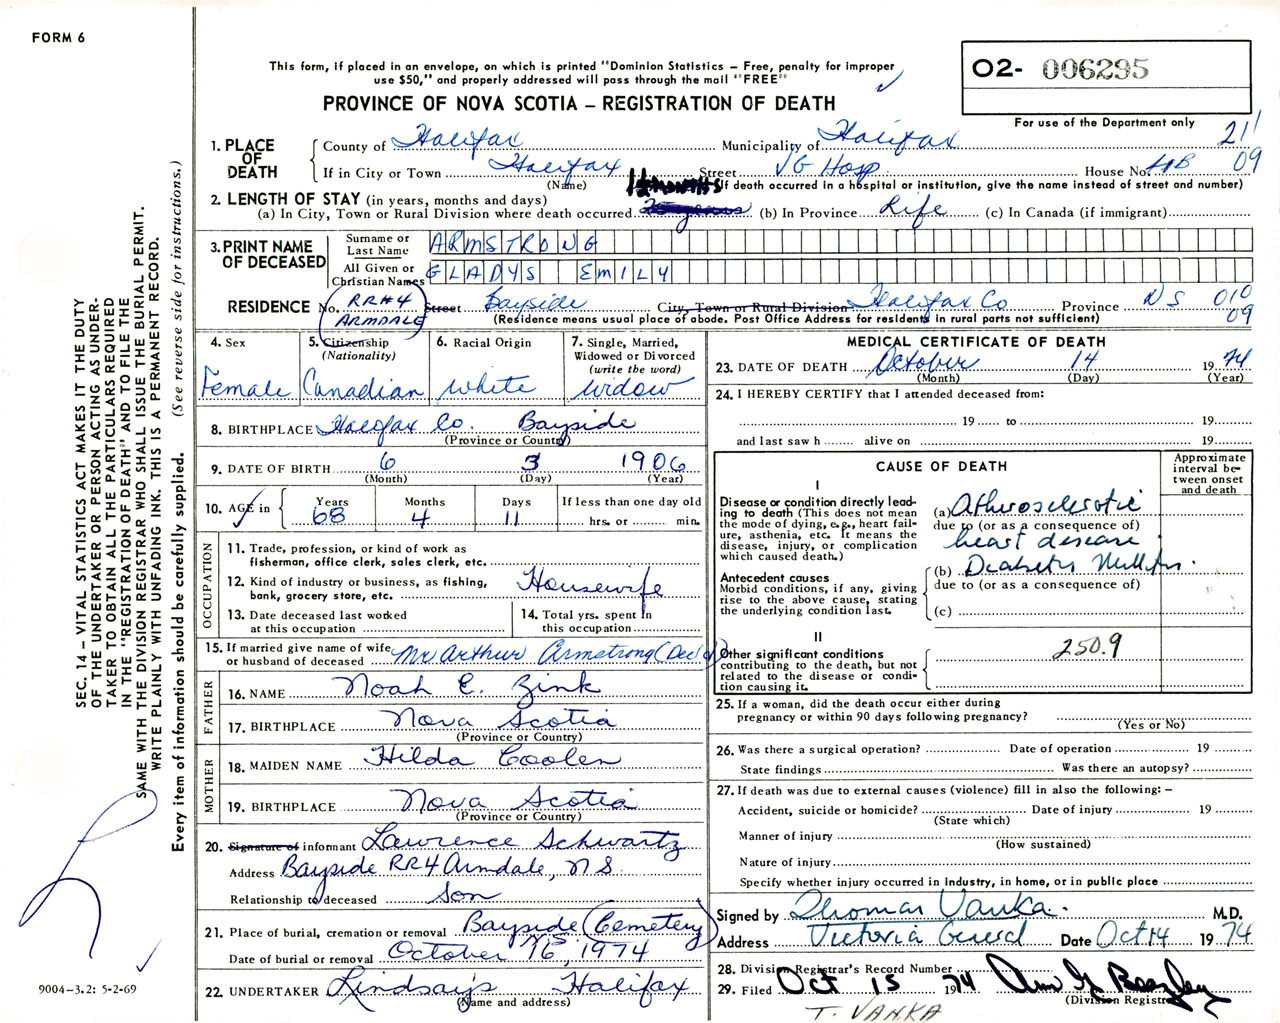 FORM 6
This form, if placed in an envelope, on which is printed "Dominion Statistics — Free, penalty for improper
use $50," and properly addressed will pass through the mail "FREE"
PROVINCE OF NOVA SCOTIA — REGISTRATION OF DEATH
O2- 006295
For use of the Department only
21
09
1. PLACE OF DEATH
County of Halifax Municipality of Halifax
If in City or Town Halifax Street VG Hosp House No.
(Name) (If death occurred in a hospital or institution, give the name instead of street and number)
2. LENGTH OF STAY (in years, months and days)
(a) In City, Town or Rural Division where death occurred (b) In Province Life (c) In Canada (if immigrant)
3. PRINT NAME OF DECEASED
Surname or Last Name ARMSTRONG
All Given or Christian Names GLADYS EMILY
RESIDENCE No. RR#4 ARMDALE Street Bayside City, Town or Rural Division Halifax Co Province NS 010
09
(Residence means usual place of abode. Post Office Address for residents in rural parts not sufficient)
4. Sex
Female
5. Citizenship
(Nationality)
Canadian
6. Racial Origin
White
7. Single, Married,
Widowed or Divorced
(write the word)
Widow
8. BIRTHPLACE Halifax Co. Bayside
(Province or Country)
9. DATE OF BIRTH 6 3 1906
(Month) (Day) (Year)
10. AGE in
Years Months Days If less than one day old
68 4 11 hrs. or min.
OCCUPATION
11. Trade, profession, or kind of work as
fisherman, office clerk, sales clerk, etc.
12. Kind of industry or business, as fishing,
bank, grocery store, etc.
Housewife
13. Date deceased last worked
at this occupation
14. Total yrs. spent in
this occupation
15. If married give name of wife
or husband of deceased Mr Arthur Armstrong (Dec'd)
FATHER
16. NAME Noah E. Zink
17. BIRTHPLACE Nova Scotia
(Province or Country)
MOTHER
18. MAIDEN NAME Hilda Coolen
19. BIRTHPLACE Nova Scotia
(Province or Country)
20. Signature of informant Lawrence Schwartz
Address Bayside RR4 Armdale, N.S.
Relationship to deceased Son
21. Place of burial, cremation or removal Bayside (Cemetery) NS
Date of burial or removal October 16, 1974
22. UNDERTAKER Lindsay's Halifax
(Name and address)
MEDICAL CERTIFICATE OF DEATH
23. DATE OF DEATH October 14 1974
(Month) (Day) (Year)
24. I HEREBY CERTIFY that I attended deceased from:
19 to 19
and last saw h alive on 19
CAUSE OF DEATH
Approximate
interval be-
tween onset
and death
I
Disease or condition directly lead-
ing to death (This does not mean
the mode of dying, e.g., heart fail-
ure, asthenia, etc. It means the
disease, injury, or complication
which caused death.)
(a) Atherosclerotic
due to (or as a consequence of)
heart disease
Antecedent causes
Morbid conditions, if any, giving
rise to the above cause, stating
the underlying condition last.
(b) Diabetes Mellitus.
due to (or as a consequence of)
(c)
II
Other significant conditions
contributing to the death, but not
related to the disease or condi-
tion causing it.
250.9
25. If a woman, did the death occur either during
pregnancy or within 90 days following pregnancy?
(Yes or No)
26. Was there a surgical operation? Date of operation 19
State findings Was there an autopsy?
27. If death was due to external causes (violence) fill in also the following: —
Accident, suicide or homicide? Date of injury 19
(State which)
Manner of injury
(How sustained)
Nature of injury
Specify whether injury occurred in industry, in home, or in public place
Signed by Thomas Vanka. M.D.
Address Victoria General Date Oct 14 1974
28. Division Registrar's Record Number
29. Filed Oct 15 1974
(Division Registrar)
T. VANKA
SEC. 14 — VITAL STATISTICS ACT MAKES IT THE DUTY
OF THE UNDERTAKER OR PERSON ACTING AS UNDER-
TAKER TO OBTAIN ALL THE PARTICULARS REQUIRED
IN THE "REGISTRATION OF DEATH" AND TO FILE THE
SAME WITH THE DIVISION REGISTRAR WHO SHALL ISSUE THE BURIAL PERMIT.
WRITE PLAINLY WITH UNFADING INK. THIS IS A PERMANENT RECORD.
Every item of information should be carefully supplied. (See reverse side for instructions.)
9004-3.2: 5-2-69